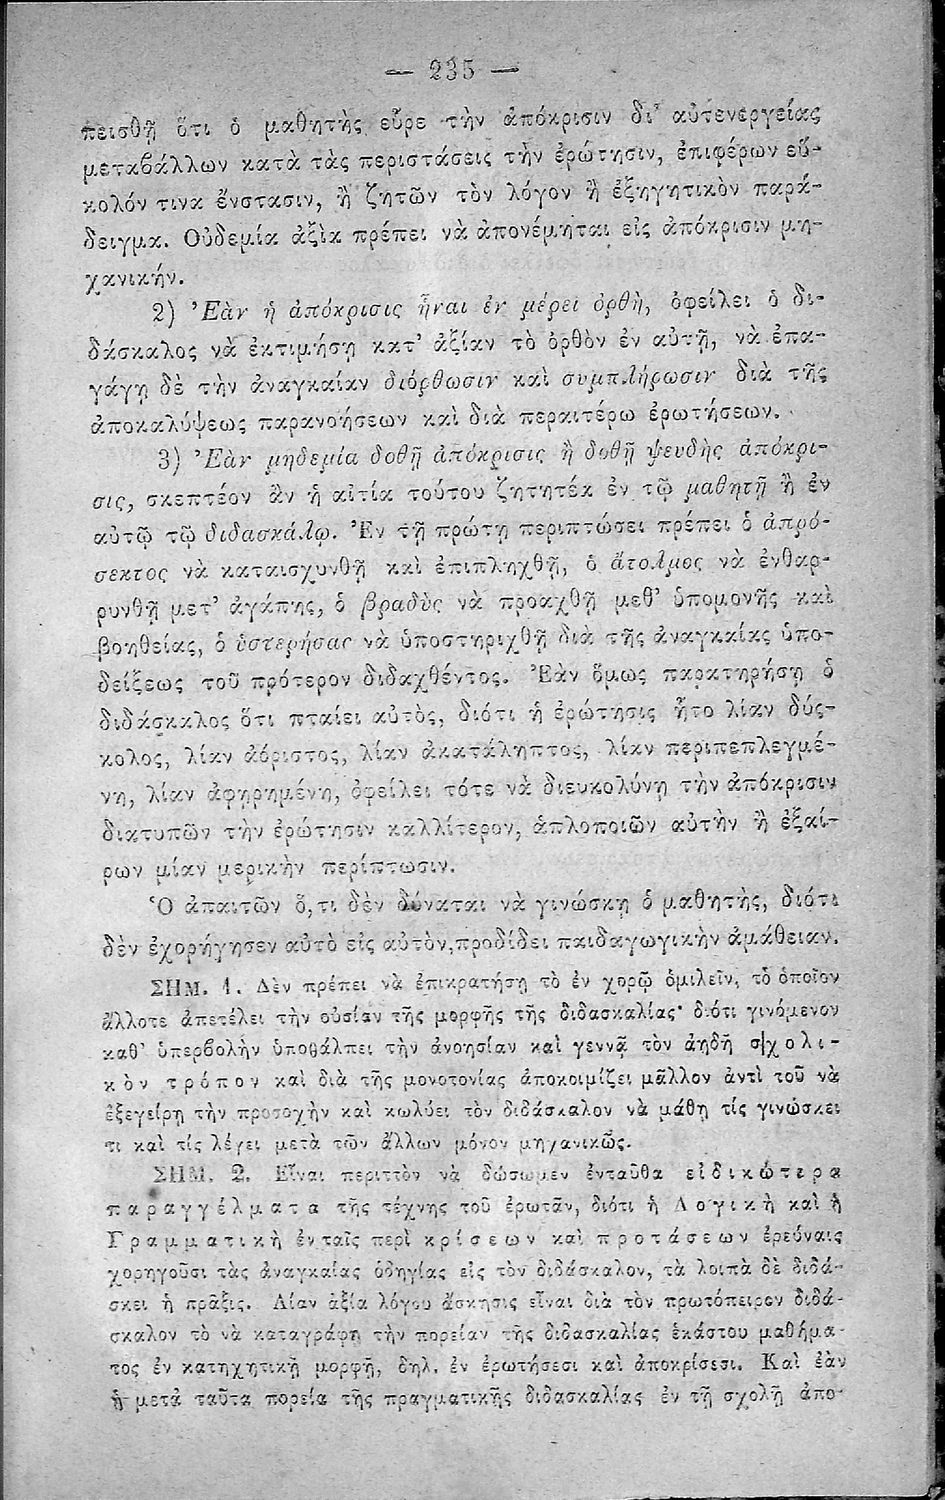 — 235 —
πεισθῇ ὅτι ὁ μαθητὴς εὗρε τὴν ἀπόκρισιν δι' αὐτενεργείας
μεταβάλλων κατὰ τὰς περιστάσεις τὴν ἐρώτησιν, ἐπιφέρων εὔ-
κολόν τινα ἔνστασιν, ἢ ζητῶν τὸν λόγον ἢ ἐξηγητικὸν παρά-
δειγμα. Οὐδεμία ἀξία πρέπει νὰ ἀπονέμηται εἰς ἀπόκρισιν μη-
χανικήν.
2) Ἐὰν ἡ ἀπόκρισις ᾖναι ἐν μέρει ὀρθή, ὀφείλει ὁ δι-
δάσκαλος νὰ ἐκτιμήσῃ κατ' ἀξίαν τὸ ὀρθὸν ἐν αὐτῇ, νὰ ἐπα-
γάγῃ δὲ τὴν ἀναγκαίαν διόρθωσιν καὶ συμπλήρωσιν διὰ τῆς
ἀποκαλύψεως παρανοήσεων καὶ διὰ περαιτέρω ἐρωτήσεων.
3) Ἐὰν μηδεμία δοθῇ ἀπόκρισις ἢ δοθῇ ψευδὴς ἀπόκρι-
σις, σκεπτέον ἂν ἡ αἰτία τούτου ζητητέα ἐν τῷ μαθητῇ ἢ ἐν
αὐτῷ τῷ διδασκάλῳ. Ἐν τῇ πρώτῃ περιπτώσει πρέπει ὁ ἀπρό-
σεκτος νὰ καταισχυνθῇ καὶ ἐπιπληχθῇ, ὁ ἄτολμος νὰ ἐνθαρ-
ρυνθῇ μετ' ἀγάπης, ὁ βραδὺς νὰ προαχθῇ μεθ' ὑπομονῆς καὶ
βοηθείας, ὁ ὑστερήσας νὰ ὑποστηριχθῇ διὰ τῆς ἀναγκαίας ὑπο-
δείξεως τοῦ πρότερον διδαχθέντος. Ἐὰν ὅμως παρατηρήσῃ ὁ
διδάσκαλος ὅτι πταίει αὐτὸς, διότι ἡ ἐρώτησις ἦτο λίαν δύς-
κολος, λίαν ἀόριστος, λίαν ἀκατάληπτος, λίαν περιπεπλεγμέ-
νη, λίαν ἀφῃρημένη, ὀφείλει τότε νὰ διευκολύνῃ τὴν ἀπόκρισιν
διατυπῶν τὴν ἐρώτησιν καλλίτερον, ἁπλοποιῶν αὐτὴν ἢ ἐξαί-
ρων μίαν μερικὴν περίπτωσιν.
Ὁ ἀπαιτῶν ὅ,τι δὲν δύναται νὰ γινώσκῃ ὁ μαθητὴς, διότι
δὲν ἐχορήγησεν αὐτὸ εἰς αὐτὸν, προδίδει παιδαγωγικὴν ἀμάθειαν.
ΣΗΜ. 1. Δὲν πρέπει νὰ ἐπικρατήσῃ τὸ ἐν χορῷ ὁμιλεῖν, τὸ ὁποῖον
ἄλλοτε ἀπετέλει τὴν οὐσίαν τῆς μορφῆς τῆς διδασκαλίας· διότι γινόμενον
καθ' ὑπερβολὴν ὑποθάλπει τὴν ἀνοησίαν καὶ γεννᾷ τὸν ἀηδῆ σχολι-
κὸν τρόπον καὶ διὰ τῆς μονοτονίας ἀποκοιμίζει μᾶλλον ἀντὶ τοῦ νὰ
ἐξεγείρῃ τὴν προσοχὴν καὶ κωλύει τὸν διδάσκαλον νὰ μάθῃ τίς γινώσκει
τι καὶ τίς λέγει μετὰ τῶν ἄλλων μόνον μηχανικῶς.
ΣΗΜ. 2. Εἶναι περιττὸν νὰ δώσωμεν ἐνταῦθα εἰδικώτερα
παραγγέλματα τῆς τέχνης τοῦ ἐρωτᾶν, διότι ἡ Λογικὴ καὶ ἡ
Γραμματικὴ ἐν ταῖς περὶ κρίσεων καὶ προτάσεων ἐρεύναις
χορηγοῦσι τὰς ἀναγκαίας ὁδηγίας εἰς τὸν διδάσκαλον, τὰ λοιπὰ δὲ διδά-
σκει ἡ πρᾶξις. Λίαν ἀξία λόγου ἄσκησις εἶναι διὰ τὸν πρωτόπειρον διδά-
σκαλον τὸ νὰ καταγράφῃ τὴν πορείαν τῆς διδασκαλίας ἑκάστου μαθήμα-
τος ἐν κατηχητικῇ μορφῇ, δηλ. ἐν ἐρωτήσεσι καὶ ἀποκρίσεσι. Καὶ ἐὰν
ἡ μετὰ ταῦτα πορεία τῆς πραγματικῆς διδασκαλίας ἐν τῇ σχολῇ ἀπο-